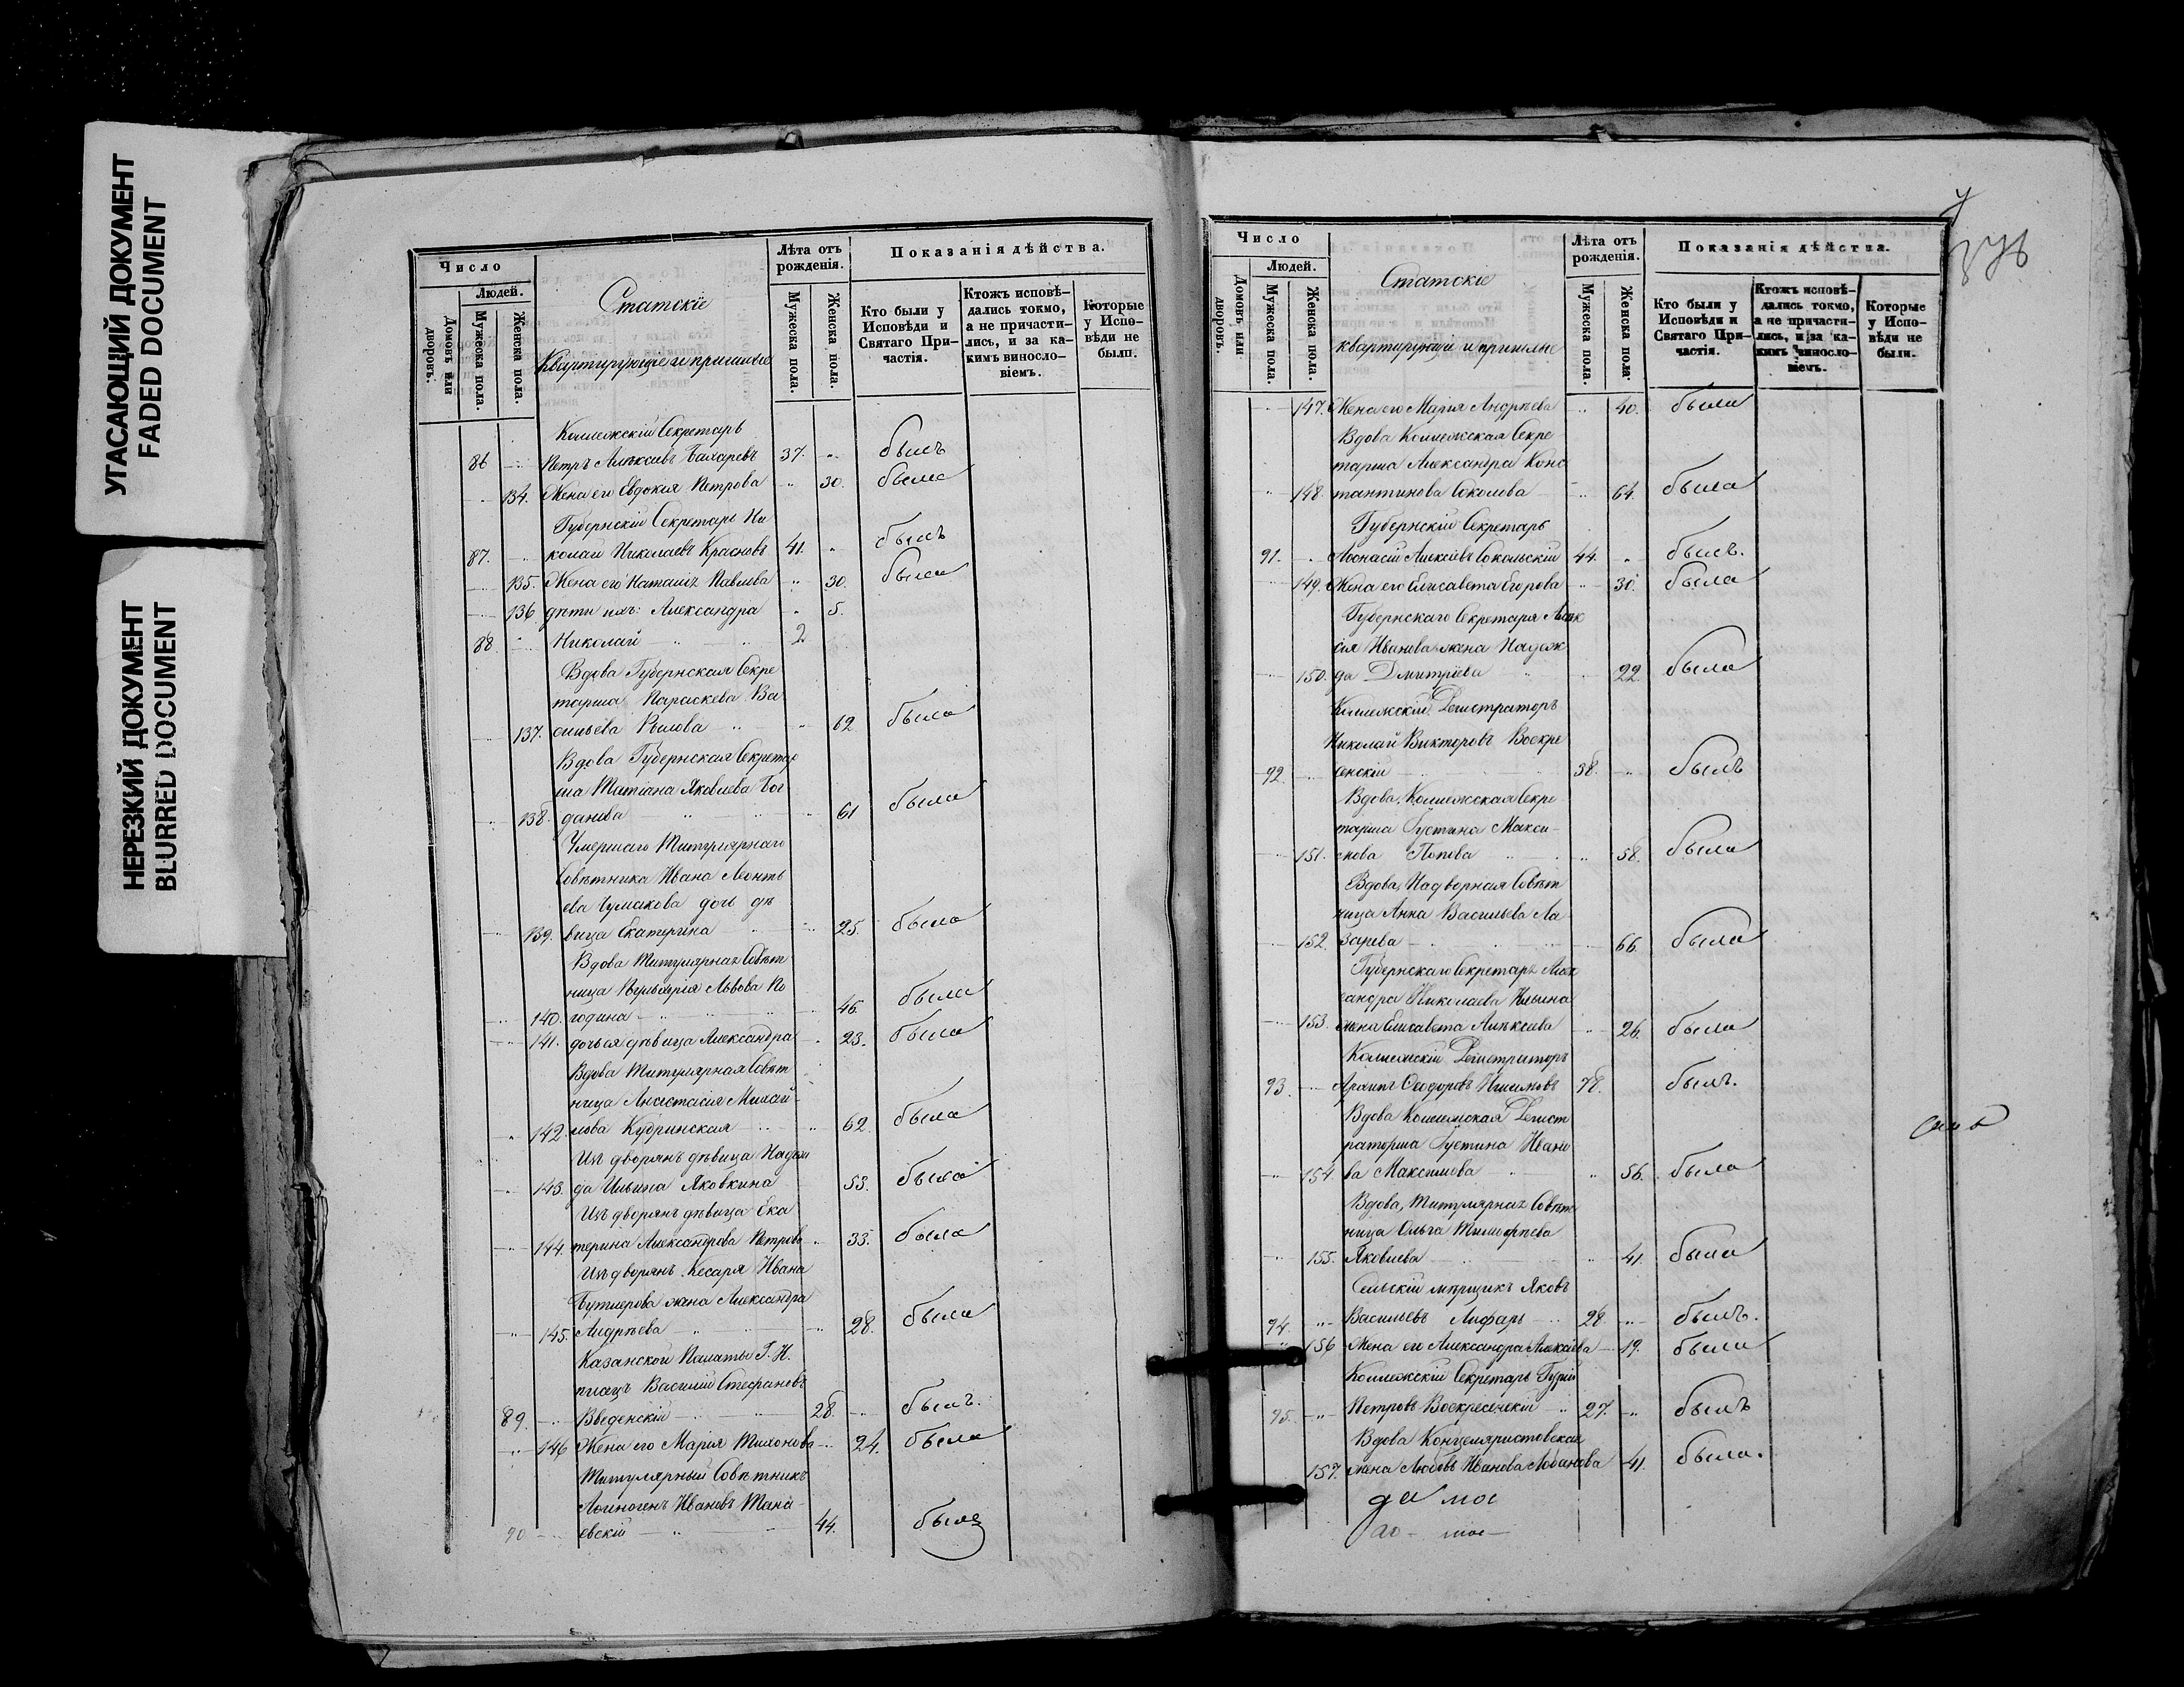 УГАСАЮЩИЙ ДОКУМЕНТ
FADED DOCUMENT
НЕРЕЗКИЙ ДОКУМЕНТ
BLURRED DOCUMENT
Число
Людей.
Домовъ или дворовъ.
Мужеска пола.
Женска пола.
Статскіе
Квартирующіе и пришлые
Лѣта отъ рожденія.
Мужеска пола.
Женска пола.
Показанія дѣйства.
Кто были у Исповѣди и Святаго Причастія.
Ктожъ исповѣдались токмо, а не причастились, и за какимъ винословіемъ.
Которые у Исповѣди не были.
Коллежскій Секретарь
86 Петръ Алексѣевъ Бахаревъ 37. былъ
134. Жена его Евдокія Петрова 30. была
Губернскій Секретарь Ни
87. колай Николаевъ Красновъ 41. былъ
135. Жена его Наталія Павлова 30. была
136 дѣти ихъ: Александра 5.
88 Николай 2
Вдова Губернская Секре
тарша Параскева Ва
137. сильева 62 была
Вдова Губернская Секретар
ша Татіана Яковлева Бог
138. данова 61 была
Умершаго Титулярнаго
Совѣтника Ивана Леонть
ева Чумакова дочь дѣ
139. вица Екатерина 25. была
Вдова Титулярная Совѣт
ница Львова По
140. година 46. была
141. дочь ея дѣвица Александра 23. была
Вдова Титулярная Совѣт
ница Анастасія Михай-
142. лова Кудринская 62. была
Изъ дворянъ дѣвица Надеж
143. да Ильина Яковкина 53. была
Изъ дворянъ дѣвица Ека
144. терина Александрова Петрова 33. была
Изъ дворянъ Кесаря Ивана
Бутлерова жена Александра
145. Андреева 28. была
Казанской Палаты Г. И.
писецъ Василій Стефановъ
89. Введенскій 28. былъ.
146 Жена его Марія Тихонова 24. была
Титулярный Совѣтникъ
Аѳиногенъ Ивановъ Тана-
90 евскій 44. былъ
Число
Людей.
Домовъ или дворовъ.
Мужеска пола.
Женска пола.
Статскіе
квартирующіе и пришлые
Лѣта отъ рожденія.
Мужеска пола.
Женска пола.
Показанія дѣйства.
Кто были у Исповѣди и Святаго Причастія.
Ктожъ исповѣдались токмо, а не причастились, и за какимъ винословіемъ.
Которые у Исповѣди не были.
147. Жена его Марія Андреева 40. была
Вдова Коллежская Секре
тарша Александра Конс
148. тантинова Соколова 64. была
Губернскій Секретарь
91. Аѳонасій Алексѣевъ Сокольскій 44. былъ.
149. Жена его Елисавета Егорова 30. была
Губернскаго Секретаря Алек
сія Иванова жена Надеж
150. да Дмитріева 22 была
Коллежскій Регистраторъ
Николай Викторовъ Воскре
92. сенскій 38. былъ
Вдова, Коллежская Секре
тарша Іустина Макси-
151. мова Попова 58. была
Вдова, Надворная Совѣт
ница Анна Васильева Ла
152. зарева 66. была
Губернскаго Секретаря Алек
сандра Николаева Ильина
153. жена Елисавета Алексѣева 26. была
Коллежскій Регистраторъ
93. Архипъ Ѳеодоровъ 78. былъ.
Вдова Коллежская Регист
раторша Іустина Ивано
154. ва Максимова 56. была
Вдова, Титулярная Совѣт
ница Ольга Тимофѣева
155. Яковлева 41. была
Сельскій мѣрщикъ Яковъ
94. Васильевъ Лифарь 28. былъ.
156 Жена его Александра Алексѣева 19. была
Коллежскій Секретарь Гурій
95. Петровъ Воскресенскій 27. былъ
Вдова Канцеляристовская
157. жена Любовь Иванова Лобанова 41. была.